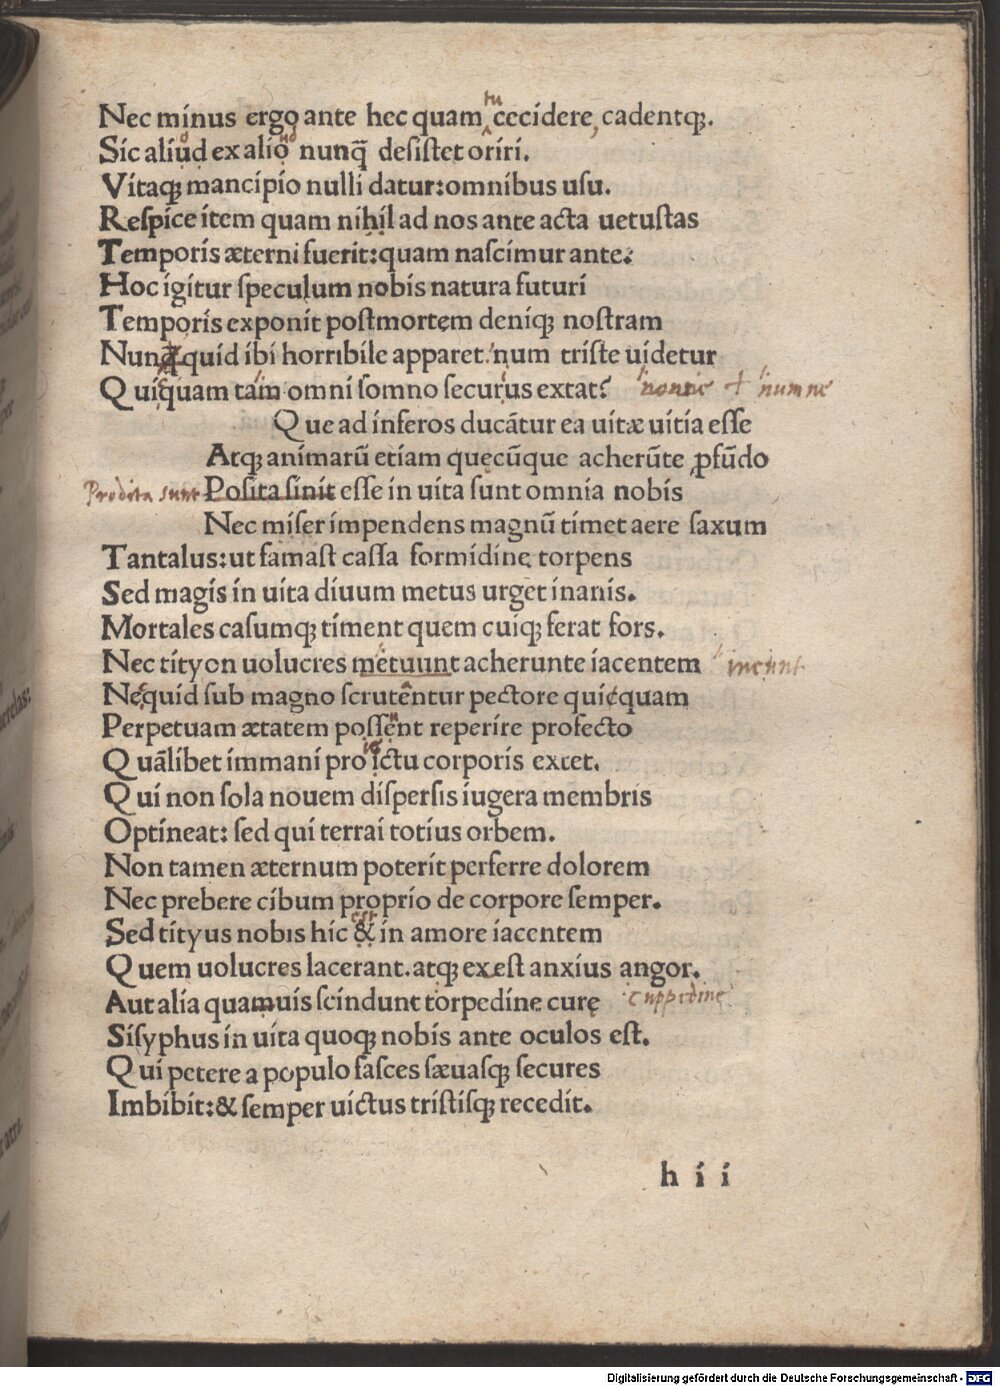 Nec minus ergo ante hec quam tu cecidere, cadentq;.
Sic aliud ex alio nunq̃ desistet oriri.
Vitaq; mancipio nulli datur:omnibus usu.
Respice item quam nihil ad nos ante acta uetustas
Temporis æterni fuerit:quam nascimur ante.
Hoc igitur speculum nobis natura futuri
Temporis exponit post mortem deniq; nostram
Nunquid ibi horribile apparet. num triste uidetur
Quicquam tam omni somno securus extat? nonne + numne
Que ad inferos ducãtur ea uitæ uitia esse
Atq; animarũ etiam quecũque acherũte ꝓfũdo
Prodita sunt Posita sinit esse in uita sunt omnia nobis
Nec miser impendens magnũ timet aere saxum
Tantalus:ut famast cassa formidine torpens
Sed magis in uita diuum metus urget inanis.
Mortales casumq; timent quem cuiq; ferat fors.
Nec tityon uolucres metuunt acherunte iacentem ineunt
Nequid sub magno scrutentur pectore quicquam
Perpetuam ætatem possent reperire profecto
Quãlibet immani pro ictu corporis extet.
Qui non sola nouem dispersis iugera membris
Optineat: sed qui terrai totius orbem.
Non tamen æternum poterit perferre dolorem
Nec prebere cibum proprio de corpore semper.
est
Sed tityus nobis hic & in amore iacentem
Quem uolucres lacerant.atq; exest anxius angor.
Aut alia quamuis scindunt torpedine curę cuppedine
Sisyphus in uita quoq; nobis ante oculos est.
Qui petere a populo fasces sæuasq; secures
Imbibit:& semper uictus tristisq; recedit.
h ii
Digitalisierung gefördert durch die Deutsche Forschungsgemeinschaft - DFG